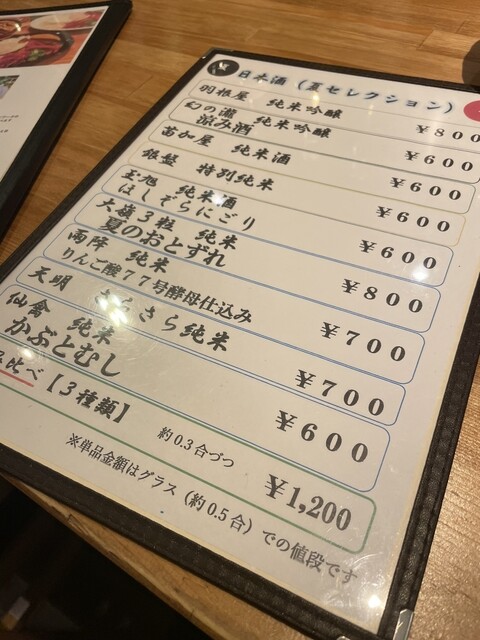 日本酒（夏セレクション）
羽根屋　純米吟醸 ￥８００
幻の瀧　純米吟醸
涼み酒 ￥６００
苗加屋　純米酒 ￥６００
銀盤　特別純米 ￥６００
玉旭　純米酒
ほしぞらにごり ￥６００
大嶺３粒　純米
夏のおとずれ ￥８００
雨降　純米
りんご酸７７号酵母仕込み ￥７００
天明　さらさら純米 ￥７００
仙禽　純米
かぶとむし ￥６００
比べ【３種類】
約0.3合づつ ￥1,200
※単品金額はグラス（約0.5合）での値段です